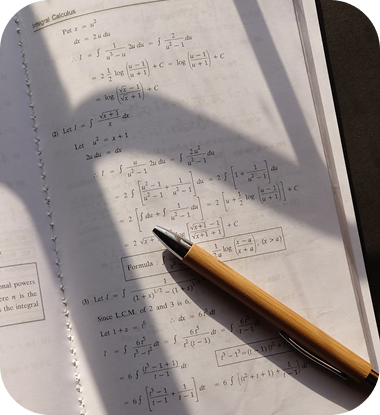 Integral Calculus
Put x = u²
dx = 2u du
∴ I = ∫ 1/(u³ − u) 2u du = ∫ 2/(u² − 1) du
= 2 1/2 log ((u − 1)/(u + 1)) + C = log ((u − 1)/(u + 1)) + C
= log ((√x − 1)/(√x + 1)) + C
(2) Let I = ∫ √(x + 1)/x dx
Let u² = x + 1
2u du = dx
∴ I = ∫ u/(u² − 1) 2u du = ∫ 2u²/(u² − 1) du
= 2 ∫ [(u² − 1)/(u² − 1) + 1/(u² − 1)] du = 2 ∫ [1 + 1/(u² − 1)] du
= 2 [∫ du + ∫ 1/(u² − 1) du] = 2 [u + 1/2 log (u − 1)/(u + 1)] + C
= 2 √x + log (√(x + 1) − 1)/(√(x + 1) + 1) + C
Formula 1/2a log ((x − a)/(x + a), (x > a)
(3) Let I = ∫ 1/((1 + x)^1/2 − (1 + x)
Since L.C.M. of 2 and 3 is 6,
Let 1 + x = t⁶ ∴ dx = 6t⁵ dt
I = ∫ 6t⁵/(t³ − t²) dt = ∫ 6t⁵/(t²(t − 1) dt = ∫ 6t³
= 6 ∫ (t³ − 1 + 1)/(t − 1) dt t³ − 1³ = (t − 1)(t²
= 6 ∫ [(t³ − 1)/(t − 1) + 1/(t − 1)] dt = 6 ∫ [(t² + t + 1) + 1/(t − 1)] dt
nal powers
ere n is the
the integral